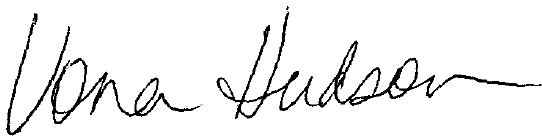 Vona Hudson